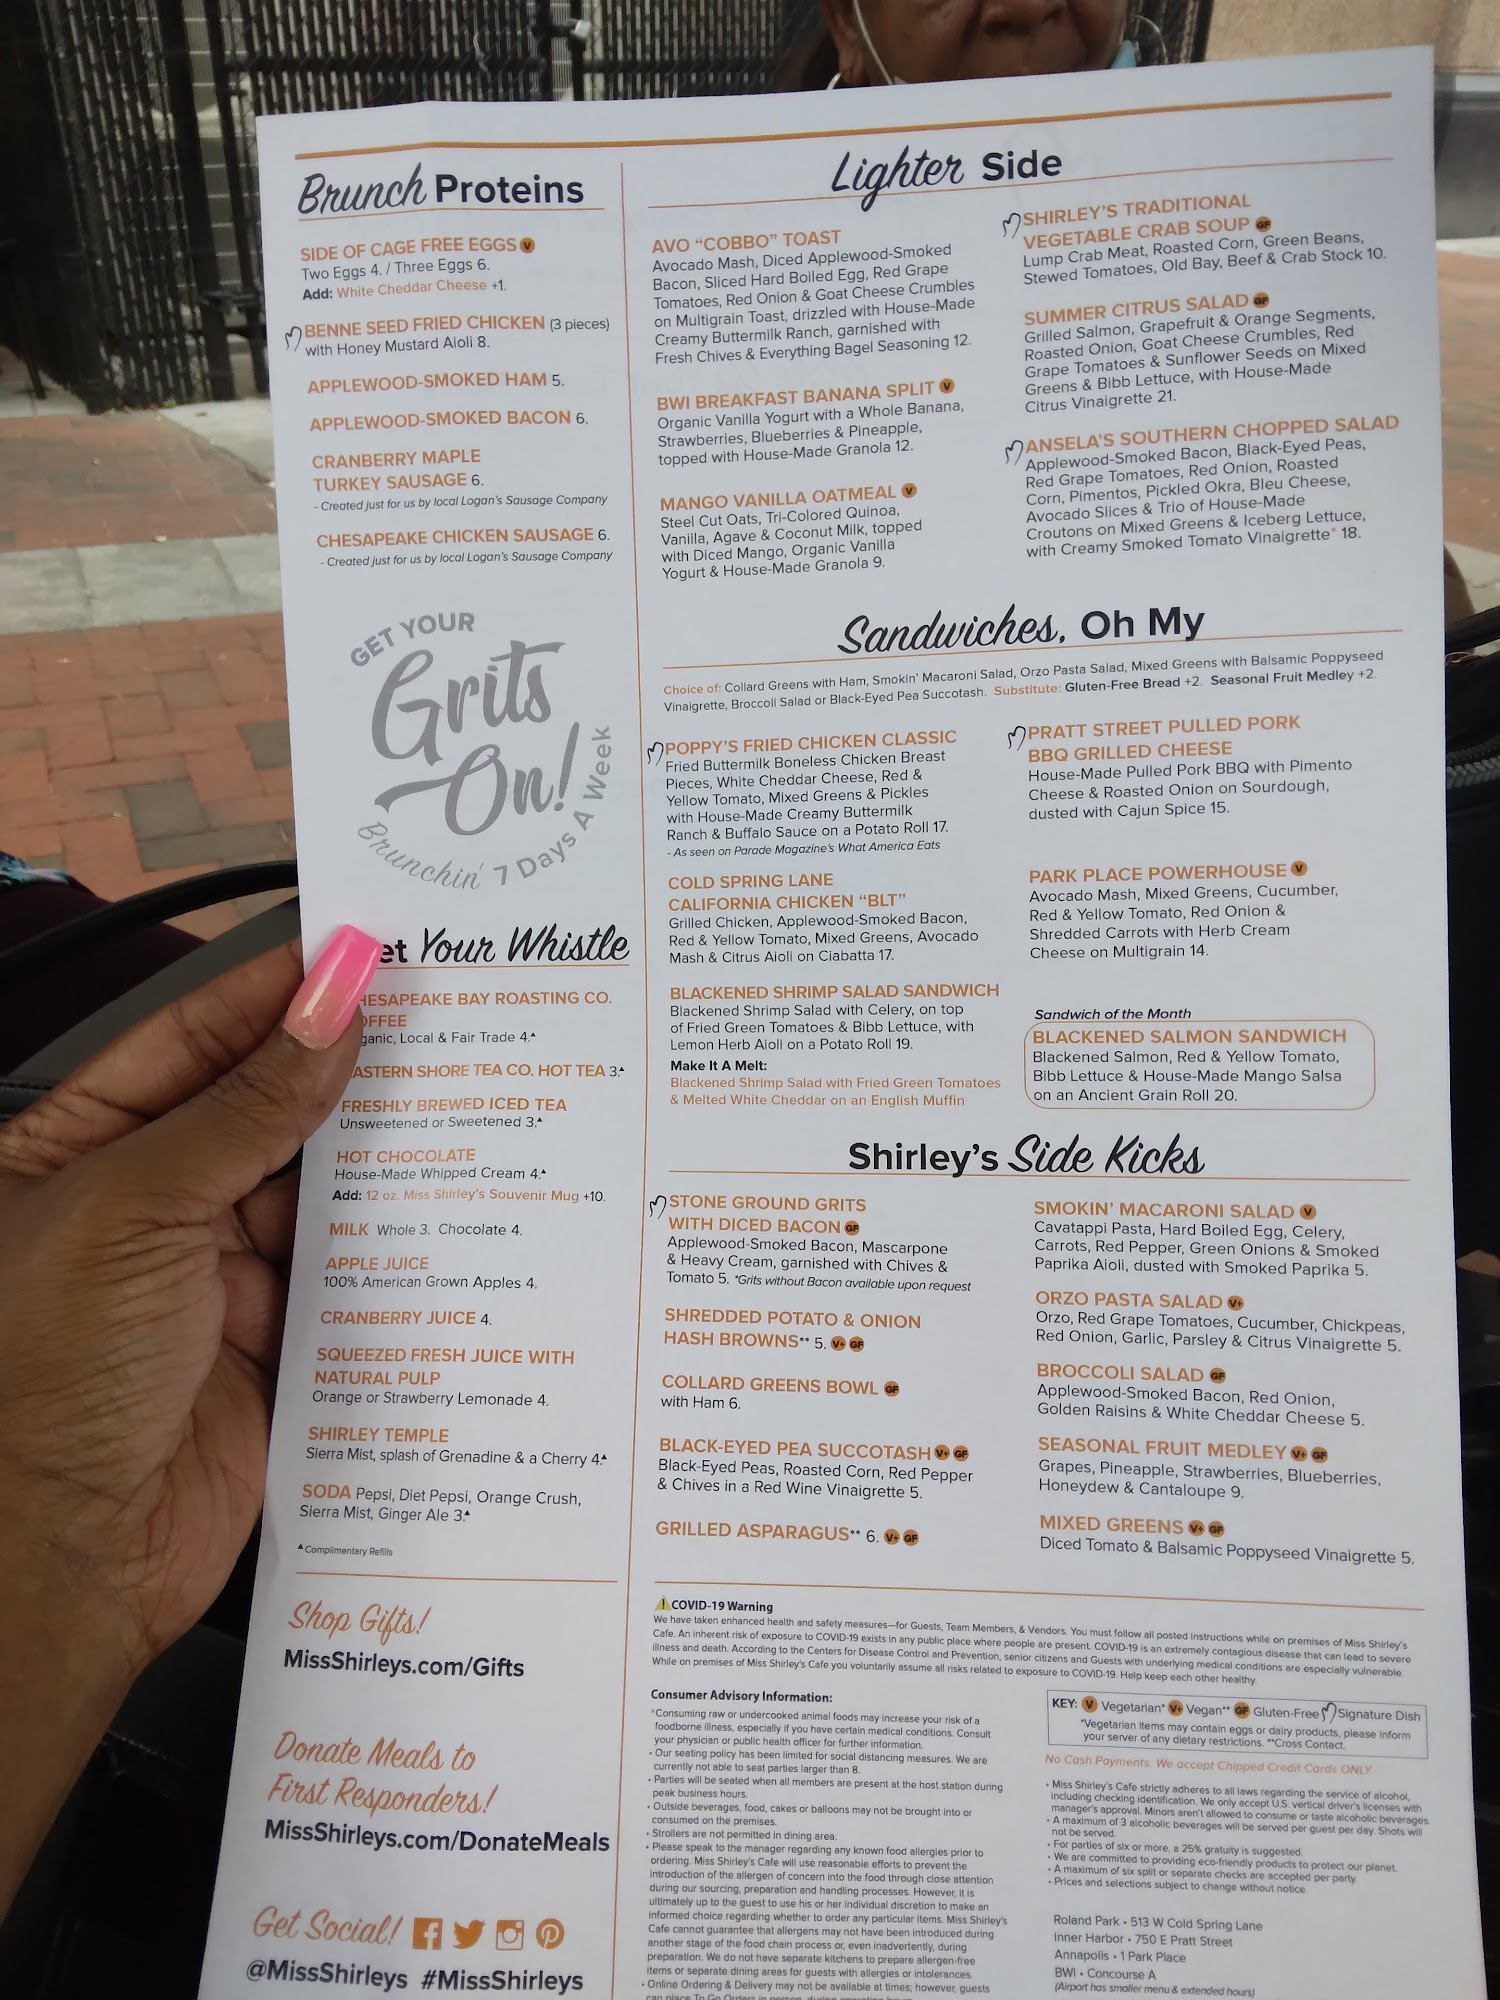 Brunch Proteins
SIDE OF CAGE FREE EGGS V
Two Eggs 4. / Three Eggs 6.
Add: White Cheddar Cheese +1.
BENNE SEED FRIED CHICKEN (3 pieces)
with Honey Mustard Aioli 8.
APPLEWOOD-SMOKED HAM 5.
APPLEWOOD-SMOKED BACON 6.
CRANBERRY MAPLE
TURKEY SAUSAGE 6.
- Created just for us by local Logan's Sausage Company
CHESAPEAKE CHICKEN SAUSAGE 6.
- Created just for us by local Logan's Sausage Company
GET YOUR
Grits
On!
Brunchin' 7 Days A Week
et Your Whistle
HESAPEAKE BAY ROASTING CO.
OFFEE
ganic, Local & Fair Trade 4.▲
ASTERN SHORE TEA CO. HOT TEA 3.▲
FRESHLY BREWED ICED TEA
Unsweetened or Sweetened 3.▲
HOT CHOCOLATE
House-Made Whipped Cream 4.▲
Add: 12 oz. Miss Shirley's Souvenir Mug +10.
MILK Whole 3. Chocolate 4.
APPLE JUICE
100% American Grown Apples 4.
CRANBERRY JUICE 4.
SQUEEZED FRESH JUICE WITH
NATURAL PULP
Orange or Strawberry Lemonade 4.
SHIRLEY TEMPLE
Sierra Mist, splash of Grenadine & a Cherry 4.▲
SODA Pepsi, Diet Pepsi, Orange Crush,
Sierra Mist, Ginger Ale 3.▲
▲Complimentary Refills
Shop Gifts!
MissShirleys.com/Gifts
Donate Meals to
First Responders!
MissShirleys.com/DonateMeals
Get Social!
@MissShirleys #MissShirleys
Lighter Side
AVO "COBBO" TOAST
Avocado Mash, Diced Applewood-Smoked
Bacon, Sliced Hard Boiled Egg, Red Grape
Tomatoes, Red Onion & Goat Cheese Crumbles
on Multigrain Toast, drizzled with House-Made
Creamy Buttermilk Ranch, garnished with
Fresh Chives & Everything Bagel Seasoning 12.
BWI BREAKFAST BANANA SPLIT V
Organic Vanilla Yogurt with a Whole Banana,
Strawberries, Blueberries & Pineapple,
topped with House-Made Granola 12.
MANGO VANILLA OATMEAL V
Steel Cut Oats, Tri-Colored Quinoa,
Vanilla, Agave & Coconut Milk, topped
with Diced Mango, Organic Vanilla
Yogurt & House-Made Granola 9.
SHIRLEY'S TRADITIONAL
VEGETABLE CRAB SOUP GF
Lump Crab Meat, Roasted Corn, Green Beans,
Stewed Tomatoes, Old Bay, Beef & Crab Stock 10.
SUMMER CITRUS SALAD GF
Grilled Salmon, Grapefruit & Orange Segments,
Roasted Onion, Goat Cheese Crumbles, Red
Grape Tomatoes & Sunflower Seeds on Mixed
Greens & Bibb Lettuce, with House-Made
Citrus Vinaigrette 21.
ANSELA'S SOUTHERN CHOPPED SALAD
Applewood-Smoked Bacon, Black-Eyed Peas,
Red Grape Tomatoes, Red Onion, Roasted
Corn, Pimentos, Pickled Okra, Bleu Cheese,
Avocado Slices & Trio of House-Made
Croutons on Mixed Greens & Iceberg Lettuce,
with Creamy Smoked Tomato Vinaigrette* 18.
Sandwiches, Oh My
Choice of: Collard Greens with Ham, Smokin' Macaroni Salad, Orzo Pasta Salad, Mixed Greens with Balsamic Poppyseed
Vinaigrette, Broccoli Salad or Black-Eyed Pea Succotash. Substitute: Gluten-Free Bread +2. Seasonal Fruit Medley +2.
POPPY'S FRIED CHICKEN CLASSIC
Fried Buttermilk Boneless Chicken Breast
Pieces, White Cheddar Cheese, Red &
Yellow Tomato, Mixed Greens & Pickles
with House-Made Creamy Buttermilk
Ranch & Buffalo Sauce on a Potato Roll 17.
- As seen on Parade Magazine's What America Eats
COLD SPRING LANE
CALIFORNIA CHICKEN "BLT"
Grilled Chicken, Applewood-Smoked Bacon,
Red & Yellow Tomato, Mixed Greens, Avocado
Mash & Citrus Aioli on Ciabatta 17.
BLACKENED SHRIMP SALAD SANDWICH
Blackened Shrimp Salad with Celery, on top
of Fried Green Tomatoes & Bibb Lettuce, with
Lemon Herb Aioli on a Potato Roll 19.
Make It A Melt:
Blackened Shrimp Salad with Fried Green Tomatoes
& Melted White Cheddar on an English Muffin
PRATT STREET PULLED PORK
BBQ GRILLED CHEESE
House-Made Pulled Pork BBQ with Pimento
Cheese & Roasted Onion on Sourdough,
dusted with Cajun Spice 15.
PARK PLACE POWERHOUSE V
Avocado Mash, Mixed Greens, Cucumber,
Red & Yellow Tomato, Red Onion &
Shredded Carrots with Herb Cream
Cheese on Multigrain 14.
Sandwich of the Month
BLACKENED SALMON SANDWICH
Blackened Salmon, Red & Yellow Tomato,
Bibb Lettuce & House-Made Mango Salsa
on an Ancient Grain Roll 20.
Shirley's Side Kicks
STONE GROUND GRITS
WITH DICED BACON GF
Applewood-Smoked Bacon, Mascarpone
& Heavy Cream, garnished with Chives &
Tomato 5. *Grits without Bacon available upon request
SHREDDED POTATO & ONION
HASH BROWNS** 5. V+ GF
COLLARD GREENS BOWL GF
with Ham 6.
BLACK-EYED PEA SUCCOTASH V+ GF
Black-Eyed Peas, Roasted Corn, Red Pepper
& Chives in a Red Wine Vinaigrette 5.
GRILLED ASPARAGUS** 6. V+ GF
SMOKIN' MACARONI SALAD V
Cavatappi Pasta, Hard Boiled Egg, Celery,
Carrots, Red Pepper, Green Onions & Smoked
Paprika Aioli, dusted with Smoked Paprika 5.
ORZO PASTA SALAD V+
Orzo, Red Grape Tomatoes, Cucumber, Chickpeas,
Red Onion, Garlic, Parsley & Citrus Vinaigrette 5.
BROCCOLI SALAD GF
Applewood-Smoked Bacon, Red Onion,
Golden Raisins & White Cheddar Cheese 5.
SEASONAL FRUIT MEDLEY V+ GF
Grapes, Pineapple, Strawberries, Blueberries,
Honeydew & Cantaloupe 9.
MIXED GREENS V+ GF
Diced Tomato & Balsamic Poppyseed Vinaigrette 5.
COVID-19 Warning
We have taken enhanced health and safety measures—for Guests, Team Members, & Vendors. You must follow all posted instructions while on premises of Miss Shirley's
Cafe. An inherent risk of exposure to COVID-19 exists in any public place where people are present. COVID-19 is an extremely contagious disease that can lead to severe
illness and death. According to the Centers for Disease Control and Prevention, senior citizens and Guests with underlying medical conditions are especially vulnerable.
While on premises of Miss Shirley's Cafe you voluntarily assume all risks related to exposure to COVID-19. Help keep each other healthy.
Consumer Advisory Information:
*Consuming raw or undercooked animal foods may increase your risk of a
foodborne illness, especially if you have certain medical conditions. Consult
your physician or public health officer for further information.
• Our seating policy has been limited for social distancing measures. We are
currently not able to seat parties larger than 8.
• Parties will be seated when all members are present at the host station during
peak business hours.
• Outside beverages, food, cakes or balloons may not be brought into or
consumed on the premises.
• Strollers are not permitted in dining area.
• Please speak to the manager regarding any known food allergies prior to
ordering. Miss Shirley's Cafe will use reasonable efforts to prevent the
introduction of the allergen of concern into the food through close attention
during our sourcing, preparation and handling processes. However, it is
ultimately up to the guest to use his or her individual discretion to make an
informed choice regarding whether to order any particular items. Miss Shirley's
Cafe cannot guarantee that allergens may not have been introduced during
another stage of the food chain process or, even inadvertently, during
preparation. We do not have separate kitchens to prepare allergen-free
items or separate dining areas for guests with allergies or intolerances.
• Online Ordering & Delivery may not be available at times; however, guests
can place To Go Orders in person, during
KEY: V Vegetarian* V+ Vegan** GF Gluten-Free Signature Dish
*Vegetarian items may contain eggs or dairy products, please inform
your server of any dietary restrictions. **Cross Contact.
No Cash Payments. We accept Chipped Credit Cards ONLY
• Miss Shirley's Cafe strictly adheres to all laws regarding the service of alcohol,
including checking identification. We only accept U.S. vertical driver's licenses with
manager's approval. Minors aren't allowed to consume or taste alcoholic beverages.
• A maximum of 3 alcoholic beverages will be served per guest per day. Shots will
not be served.
• For parties of six or more, a 25% gratuity is suggested.
• We are committed to providing eco-friendly products to protect our planet.
• A maximum of six split or separate checks are accepted per party.
• Prices and selections subject to change without notice.
Roland Park • 513 W Cold Spring Lane
Inner Harbor • 750 E Pratt Street
Annapolis • 1 Park Place
BWI • Concourse A
(Airport has smaller menu & extended hours)